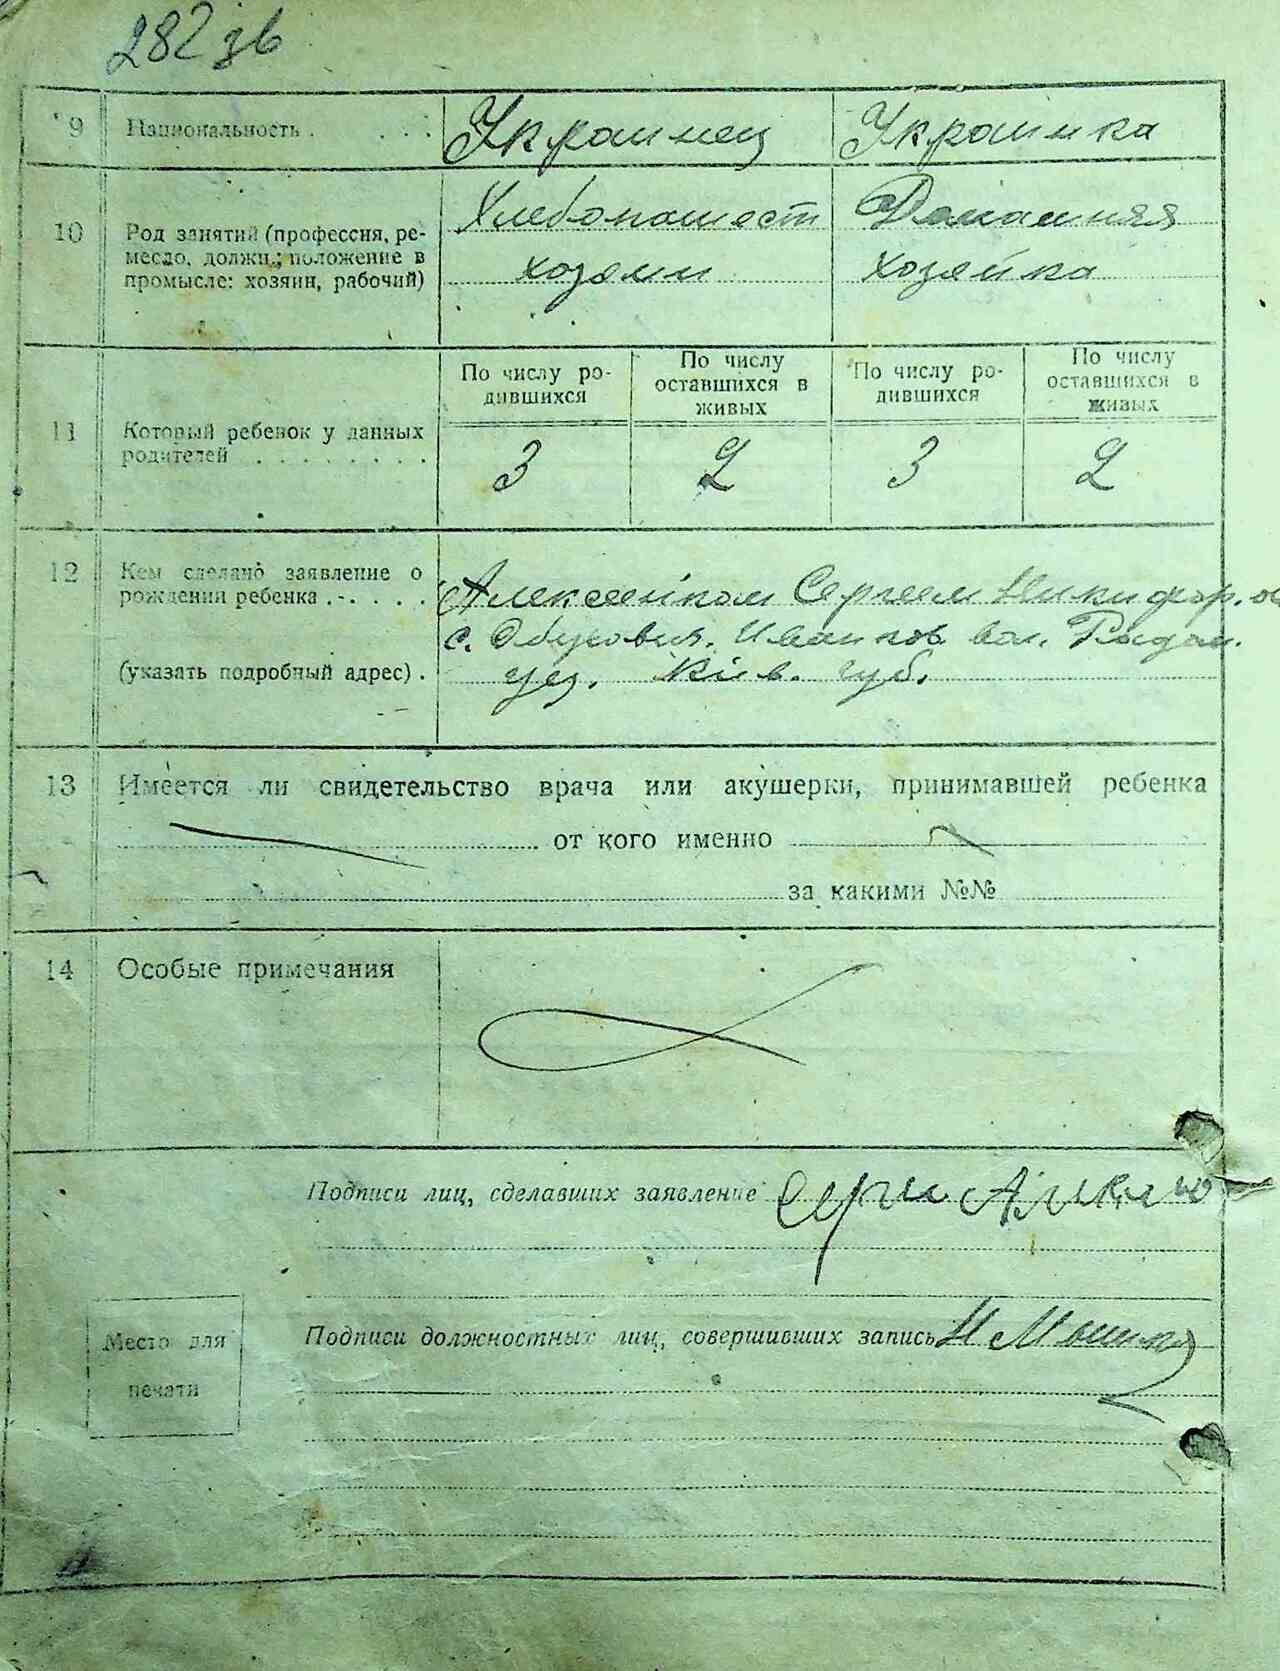 282 зв
9 Национальность . . . . Украинец Украинка
10 Род занятий (профессия, ре-
месло, должн.; положение в
промысле: хозяин, рабочий)
Хлебопашест Домашняя
хозяин хозяйка
11 Который ребенок у данных
родителей . . . . . . . .
По числу ро-
дившихся
По числу
оставшихся в
живых
По числу ро-
дившихся
По числу
оставшихся в
живых
3 2 3 2
12 Кем сделано заявление о
рождении ребенка . . . . .
(указать подробный адрес) .
Сергеем Никифор.
с. Обуховичи. Иванков. вол.
уез. Кіив. губ.
13 Имеется ли свидетельство врача или акушерки, принимавшей ребенка
от кого именно
за какими №№
14 Особые примечания
Подписи лиц, сделавших заявление
Место для
печати
Подписи должностных лиц, совершивших запись